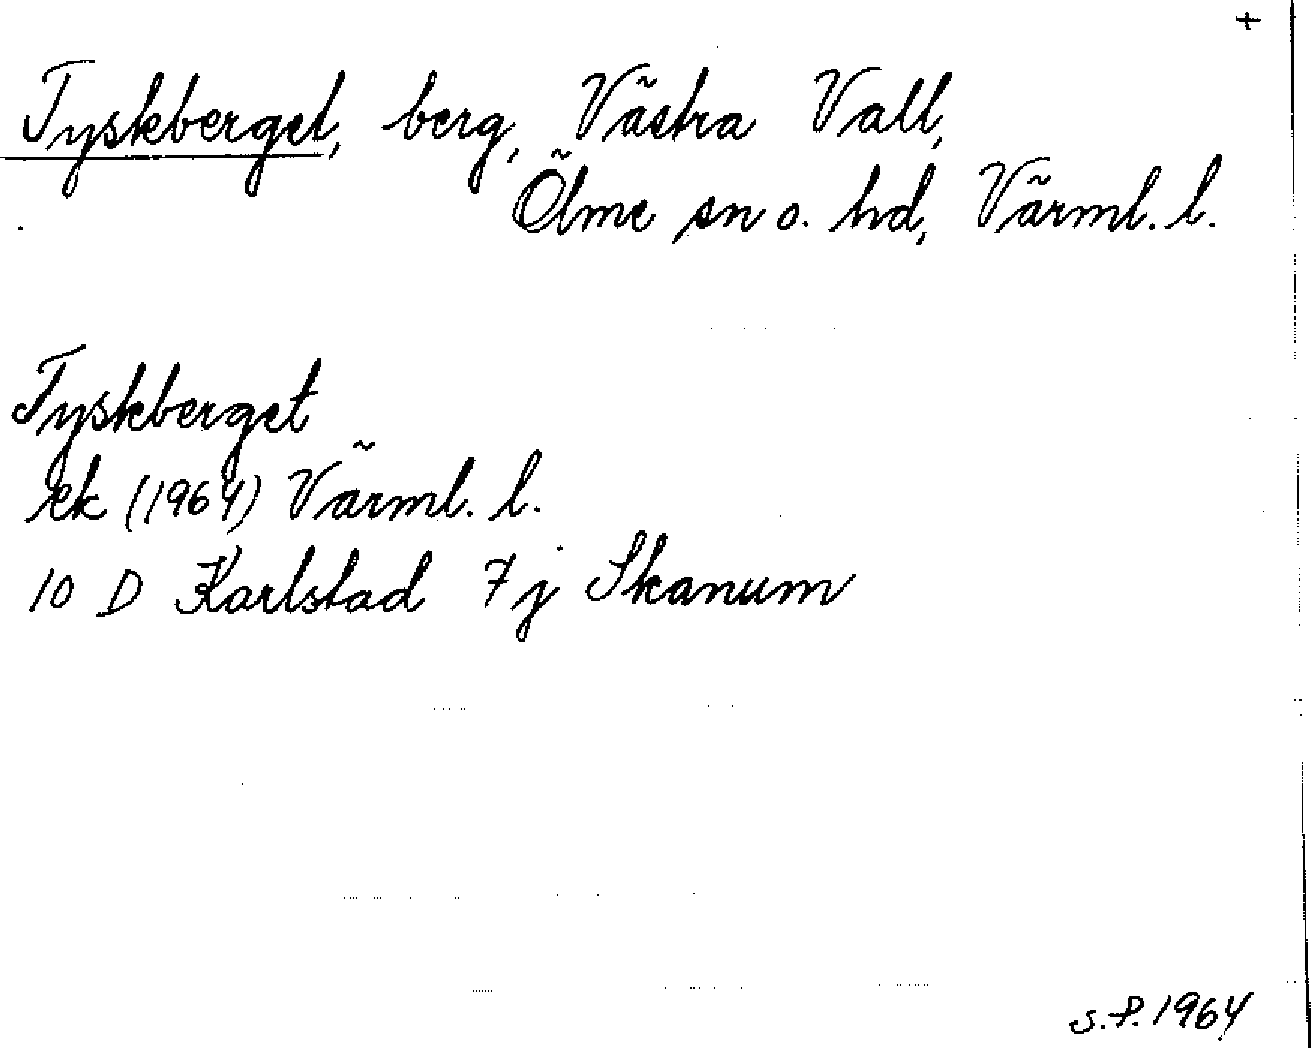 +
Tyskberget, berg, Västra Vall,
Ölme sn o. hd, Värml. l.
Tyskberget
ek (1964) Värml. l.
10 D Karlstad 7j Skanum
S.P. 1964